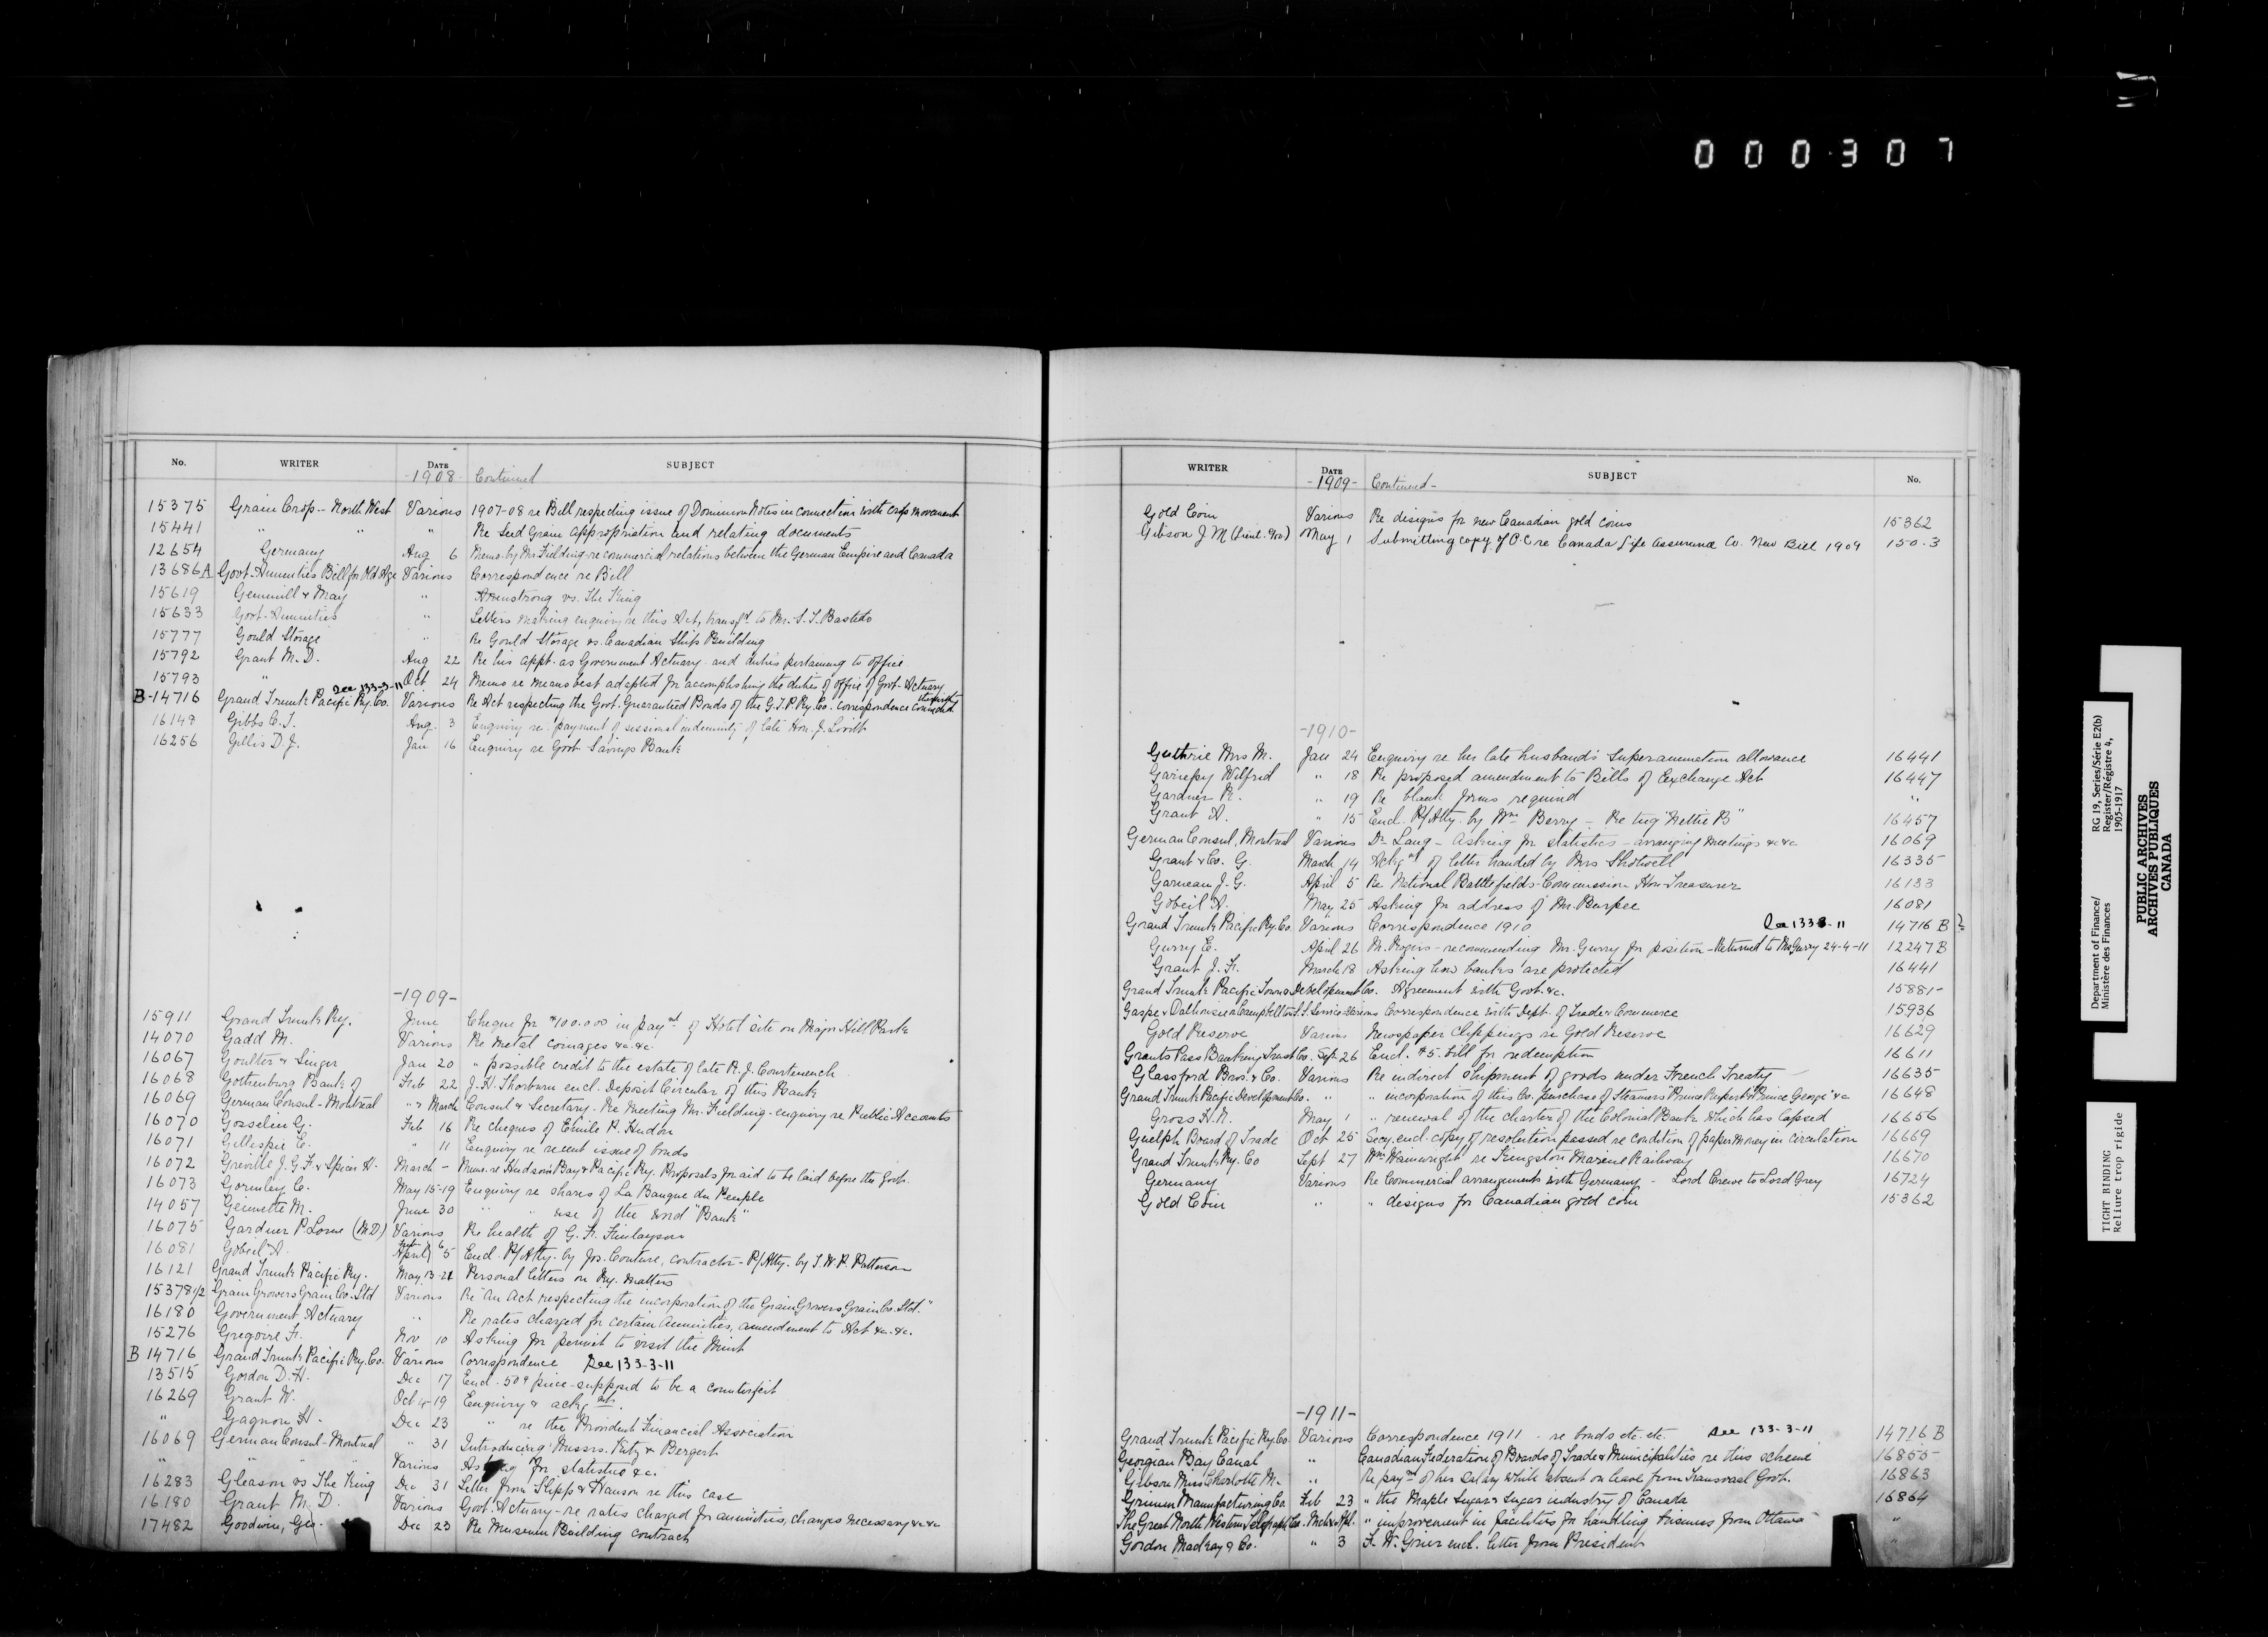 000307
No. WRITER DATE SUBJECT
-1908- Continued
15375 Grain Crop - North West Various 1907-08 re Bill respecting issue of Dominion Notes in connection with crop movement
15441 " " " Re Seed Grain appropriation and relating documents
12654 Germany Aug 6 Memo. by Mr Fielding re commercial relations between the German Empire and Canada
13686A Govt. Annuities Bill for Old Age Various Correspondence re Bill
15619 Gemmill & May " Armstrong vs. The King
15633 Govt. Annuities " Letters making enquiry re this Act, transfd to Mr. S.T. Bastedo
15777 Gould Storage " Re Gould Storage vs. Canadian Ship Building
15792 Grant M.D. Aug 22 Re his appt. as Government Actuary and duties pertaining to office
15793 " Oct 24 Memo re means best adapted for accomplishing the duties of office of Govt. Actuary
See 133-3-11
B-14716 Grand Trunk Pacific Ry. Co. Various Re Act respecting the Govt. Guaranteed Bonds of the G.T.P. Ry. Co. correspondence connected therewith
16149 Gibbs C.T. Aug. 3 Enquiry re payment of sessional indemnity of late Hon. J. Lovitt
16256 Gillis D.J. Jan 16 Enquiry re Govt Savings Bank
-1909-
15911 Grand Trunk Ry. June Cheque for $100.000 in paymt of Hotel site on Major Hill Park
14070 Gadd M. Various Re metal coinages &c. &c.
16067 Goulter & Singer Jan 20 " possible credit to the estate of late R.J. Courtenench
16068 Gothenburg Bank of Feb 22 J.H. Thorburn encl. Deposit Circular of this Bank
16069 German Consul - Montreal " & March Consul & Secretary - Re meeting Mr. Fielding - enquiry re Public Accounts
16070 Gosselin G. Feb 16 Re cheques of Emile P. Hudon
16071 Gillespie E. " 11 Enquiry re recent issue of bonds
16072 Greville J.G.F. & Spicer H. March - Memo. re Hudson's Bay & Pacific Ry. Proposals for aid to be laid before the Govt.
16073 Gormley C. May 15-19 Enquiry re shares of La Banque du Peuple
14057 M. June 30 " " use of the word "Bank"
16075 Gardner P. Lorne (M.D.) Various Re health of G.F. Finlayson
16081 Gobeil A. Feb 6 April 5 Encl. P/Atty. by Jos. Couture, contractor - P/Atty. by T.W.P. Patterson
16121 Grand Trunk Pacific Ry. May 13-21 Personal letters on Ry. matters
15378 1/2 Grain Growers Grain Co. Ltd Various Re "An Act respecting the incorporation of the Grain Growers Grain Co. Ltd."
16180 Government Actuary " Re rates charged for certain annuities, amendment to Act &c. &c.
15276 Gregoire F. Nov 10 Asking for permit to visit the Mint
B 14716 Grand Trunk Pacific Ry. Co. Various Correspondence See 133-3-11
13515 Gordon D.H. Dec 17 Encl. 50¢ piece - supposed to be a counterfeit
16269 Grant W. Oct 4-19 Enquiry & ackgmt.
" Gagnon H. Dec 23 " re the Provident Financial Association
16069 German Consul - Montreal " 31 Introducing Messrs. & Bergert
" " " Various Asking for statistics &c.
16283 Gleason vs The King Dec 31 Letter from Slipp & Hanson re this case
16180 Grant M.D. Various Govt. Actuary - re rates charged for annuities, changes necessary &c &c
17482 Goodwin, Geo. Dec 23 Re Museum Building contract
WRITER DATE SUBJECT No.
-1909- Continued-
Gold Coin Various Re designs for new Canadian gold coins 15362
Gibson J M (Lieut. Gov.) May 1 Submitting copy of O.C. re Canada Life Assurance Co. New Bill 1909 150.3
-1910-
Guthrie Mrs M. Jan 24 Enquiry re her late husband's Superannuation allowance 16441
Gariepy Wilfred " 18 Re proposed amendment to Bills of Exchange Act 16447
Gardner R. " 19 Re blank forms required "
Grant A. " 15 Encl. P/Atty. by Wm Berry - Re tug "Nettie B" 16457
German Consul, Montreal Various Dr Lang - Asking for statistics - arranging meetings &c &c 16069
Grant & Co. G. March 14 Ackgmt of letter handed by Mrs Shotwell 16335
Garneau J.G. April 5 Re National Battlefields Commission Hon-Treasurer 16133
Gobeil A. May 25 Asking for address of Mr. Burpee 16081
Grand Trunk Pacific Ry. Co. Various Correspondence 1910 See 133-3-11 14716 B
Gurry E. April 26 M. Rogers - recommending Mr. Gurry for position - Returned to Mr Gurry 24-4-11 12247 B
Grant J.F. March 18 Asking how banks are protected 16441
Grand Trunk Pacific Town & Development Co. Agreement with Govt. &c. 15881
Gaspe & Dalhousie or Campbellton S.S. Service Various Correspondence with Dept. of Trade & Commerce 15936
Gold Reserve Various Newspaper clippings re Gold Reserve 16629
Grants Pass Banking Trust Co. Sept 26 Encl. $5. bill for redemption 16611
Glassford Bros. & Co. Various Re indirect shipment of goods under French Treaty 16635
Grand Trunk Pacific Development Co. " " incorporation of this Co. purchase of Steamers "Prince Rupert" & "Prince George" &c 16648
Gross H.N. May 1 " renewal of the charter of the Colonial Bank which has lapsed 16656
Guelph Board of Trade Oct 25 Secy. encl. copy of resolution passed re condition of paper money in circulation 16669
Grand Trunk Ry. Co Sept 27 Wm Wainwright re Kingston Marine Railway 16670
Germany Various Re Commercial arrangements with Germany - Lord Crewe to Lord Grey 16724
Gold Coin " " designs for Canadian gold coin 15362
-1911-
Grand Trunk Pacific Ry. Co. Various Correspondence 1911 - re bonds etc. etc. See 133-3-11 14716 B
Georgian Bay Canal " Canadian Federation of Boards of Trade & Municipalities re this scheme 16855
Gibson Miss Charlotte M. " Re paymt of her salary while absent on leave from Transvaal Govt. 16863
Grimm Manufacturing Co Feb 23 " the Maple Sugar & Sugar industry of Canada 16864
The Great North Western Telegraph Co. Mch & Apl. " improvement in facilities for handling business from Ottawa "
Gordon MacKay & Co. " 3 F.W. Grier encl. letter from President "
Department of Finance/
Ministère des Finances
RG 19, Series/Série E2(b)
Register/Régistre 4,
1905-1917
PUBLIC ARCHIVES
ARCHIVES PUBLIQUES
CANADA
TIGHT BINDING
Reliure trop rigide